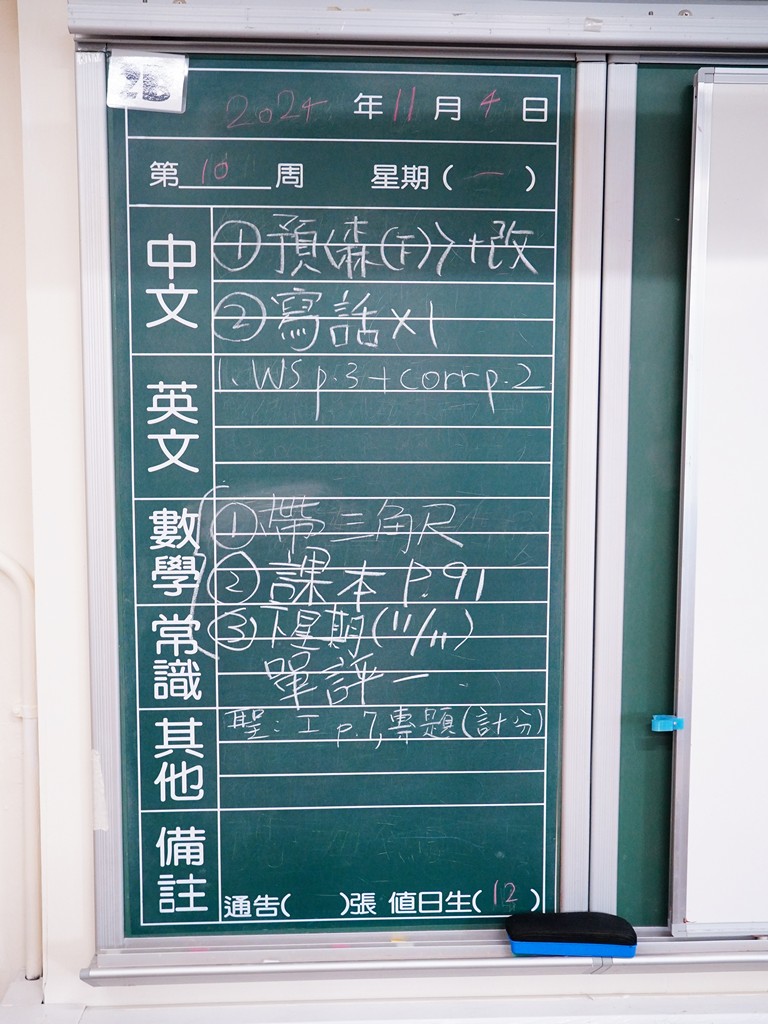 2B
2024 年 11 月 4 日
第 10 周 星期( 一 )
中文
① 預〈森(下)〉+改
② 寫話×1
英文
1. WS p.3 + corr p.2
數學
① 帶三角尺
② 課本 P.91
常識
③ 下星期(11/11)
單評一
其他
聖: I p.7, 專題(計分)
備註
通告( )張 值日生( 12 )